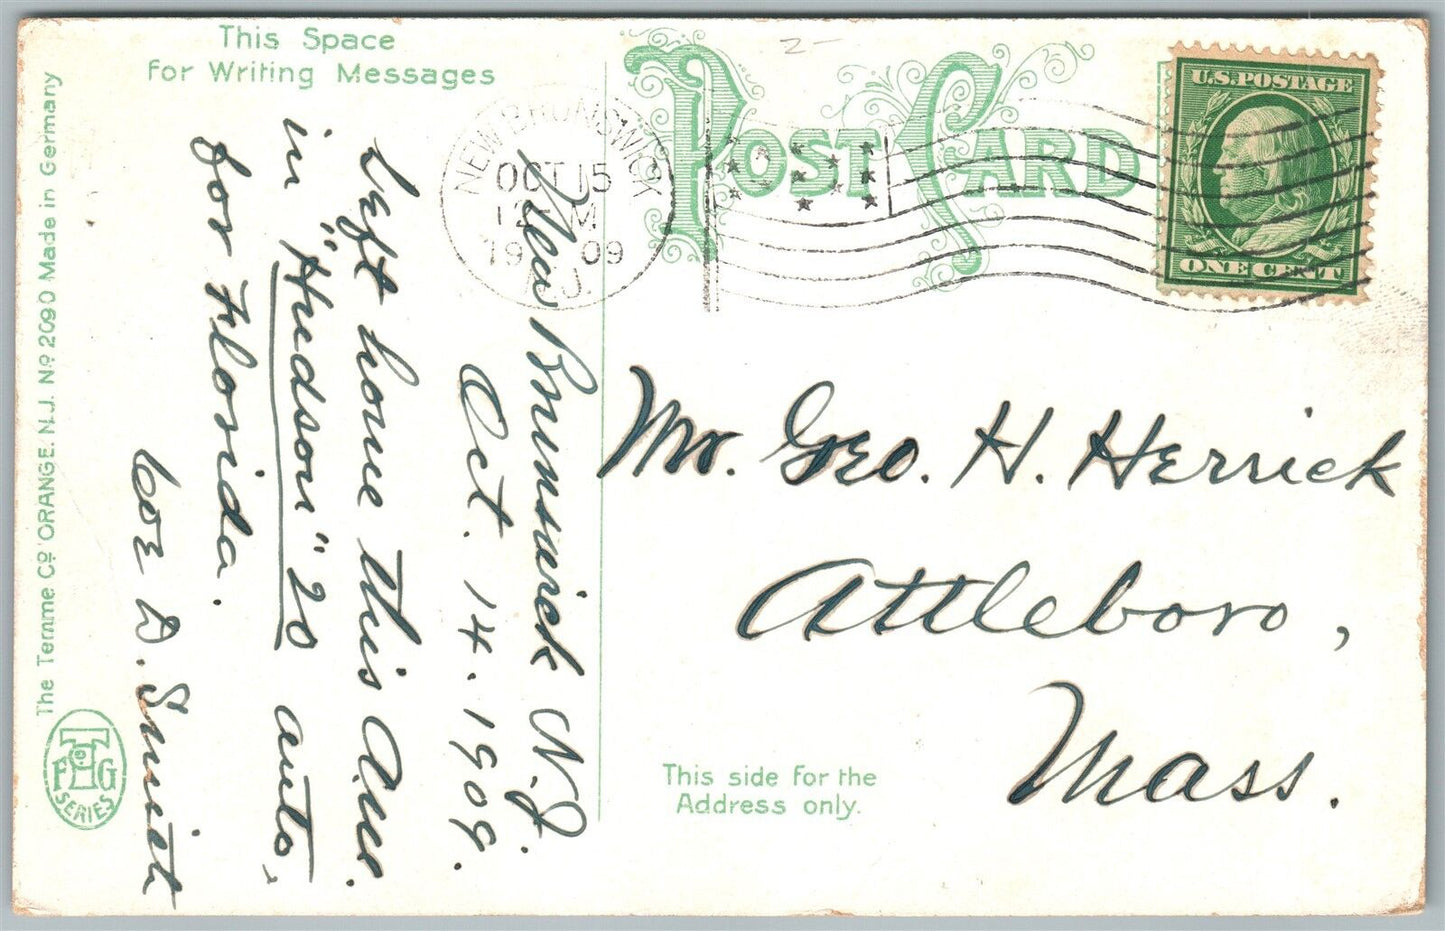 This Space
For Writing Messages
POST CARD
U.S. POSTAGE
ONE CENT
NEW BRUNSWICK
OCT 15
12 M
1909
N.J.
New Brunswick N.J.
Oct. 14. 1909.
Left home this am.
in "Hudson" 20 auto,
for Florida.
D. Smith
Mr. Geo. H. Herrick
Attleboro,
Mass.
This side for the
Address only.
The Temme Co ORANGE. N.J. No 2090 Made in Germany
F T G
SERIES